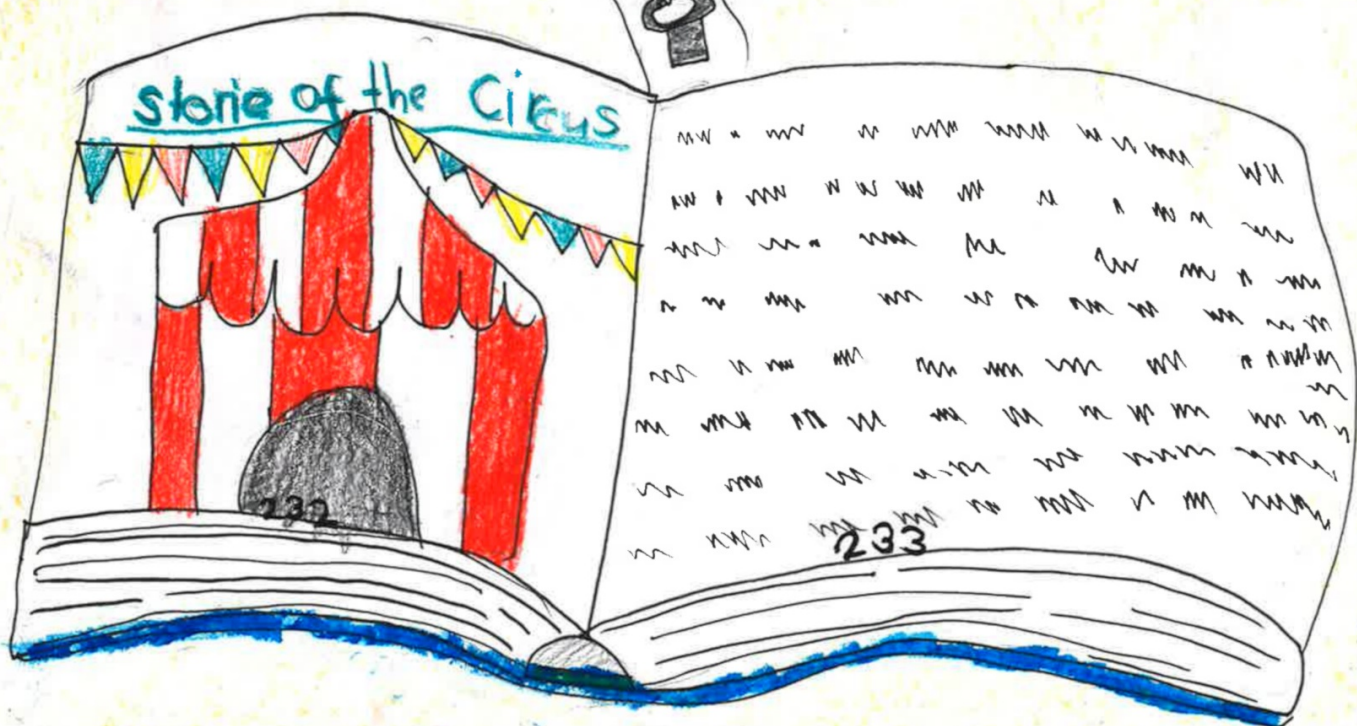 storie of the Circus
232
233